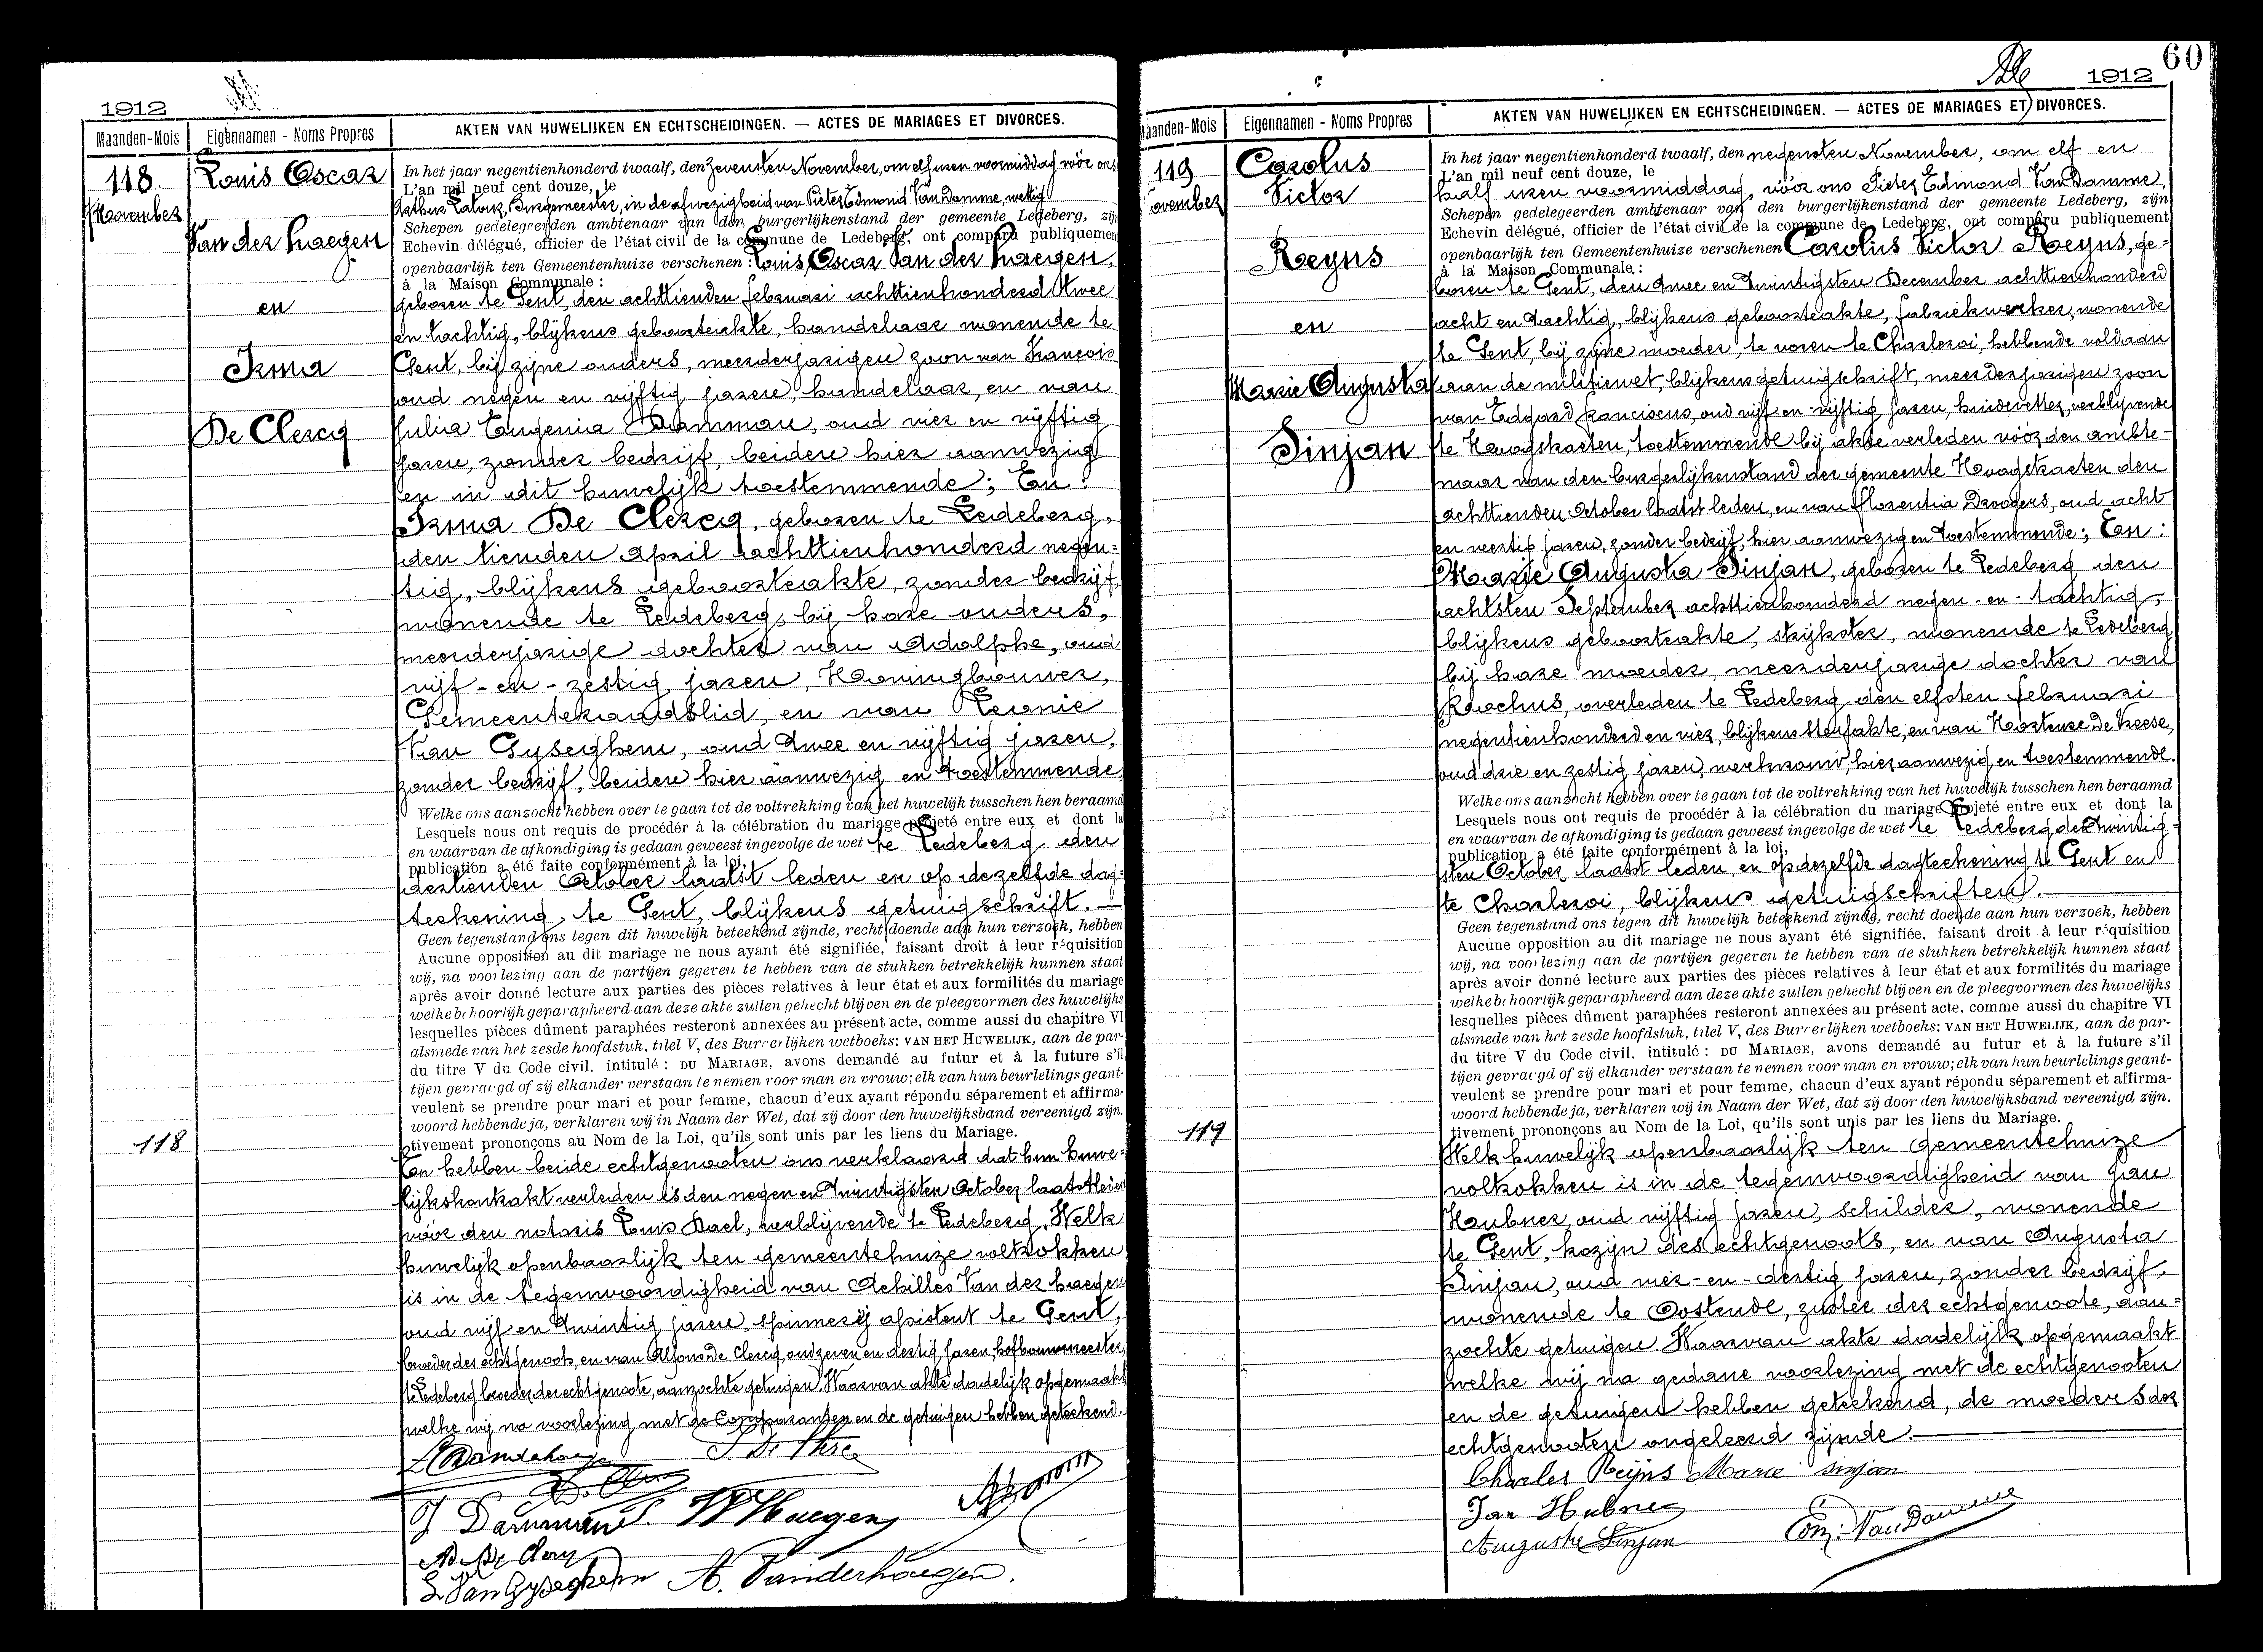 1912
Maanden-Mois
Eigennamen - Noms Propres
AKTEN VAN HUWELIJKEN EN ECHTSCHEIDINGEN. — ACTES DE MARIAGES ET DIVORCES.
118.
November
Louis Oscar
Van der haegen
en
Irma
De Clercq
118
In het jaar negentienhonderd twaalf, den zevensten November, om elf uren voormiddag vóór ons
L'an mil neuf cent douze, le
Arthur Latour, Burgemeester, in de afwezigheid van Pieter Edmond Van Damme, wettig
Schepen gedelegeerden ambtenaar van den burgerlijkenstand der gemeente Ledeberg, zijn
Echevin délégué, officier de l'état civil de la commune de Ledeberg, ont comparu publiquement
openbaarlijk ten Gemeentenhuize verschenen : Louis Oscar Van der haegen,
à la Maison Communale :
geboren te Gent, den achttienden februari achttienhonderd twee
en tachtig, blijkens geboorteakte, handelaar wonende te
Gent, bij zijne ouders, meerderjarigen zoon van François
oud negen en vijftig jaren, handelaar, en van
Julia Eugenia Damman, oud vier en vijftig
jaren, zonder bedrijf, beiden hier aanwezig
en in dit huwelijk toestemmende; En:
Irma De Clercq, geboren te Ledeberg,
den tienden april achttienhonderd negen-
tig, blijkens geboorteakte, zonder bedrijf,
wonende te Ledeberg, bij hare ouders,
meerderjarige dochter van Adolphe, oud
vijf-en-zestig jaren, Hovingbouwer,
Gemeenteraadslid, en van Leonie
Van Gyseghem, oud twee en vijftig jaren,
zonder bedrijf, beiden hier aanwezig en toestemmende
Welke ons aanzocht hebben over te gaan tot de voltrekking van het huwelijk tusschen hen beraamd
Lesquels nous ont requis de procédér à la célébration du mariage projeté entre eux et dont la
en waarvan de afkondiging is gedaan geweest ingevolge de wet te Ledeberg den
publication a été faite conformément à la loi,
dertienden October laatst leden en op dezelfde dag-
teekening, te Gent, blijkens getuigschrift.—
Geen tegenstand ons tegen dit huwelijk beteekend zijnde, recht doende aan hun verzoek, hebben
Aucune opposition au dit mariage ne nous ayant été signifiée, faisant droit à leur réquisition
wij, na voorlezing aan de partijen gegeven te hebben van de stukken betrekkelijk hunnen staat
après avoir donné lecture aux parties des pièces relatives à leur état et aux formilités du mariage
welke behoorlijk geparapheerd aan deze akte zullen gehecht blijven en de pleegvormen des huwelijks
lesquelles pièces dûment paraphées resteront annexées au présent acte, comme aussi du chapitre VI
alsmede van het zesde hoofdstuk, titel V, des Burgerlijken wetboeks: VAN HET HUWELIJK, aan de par-
du titre V du Code civil, intitulé : DU MARIAGE, avons demandé au futur et à la future s'il
tijen gevraagd of zij elkander verstaan te nemen voor man en vrouw; elk van hun beurlelings geant-
veulent se prendre pour mari et pour femme, chacun d'eux ayant répondu séparement et affirma-
woord hebbende ja, verklaren wij in Naam der Wet, dat zij door den huwelijksband vereenigd zijn.
tivement prononçons au Nom de la Loi, qu'ils sont unis par les liens du Mariage.
En hebben beide echtgenooten ons verklaard dat hun huwe-
lijkskontrakt verleden is den negen en twintigsten October laatstleden
vóór den notaris Louis Dael, verblijvende te Ledeberg. Welk
huwelijk openbaarlijk ten gemeentehuize voltrokken
is in de tegenwoordigheid van Achilles Van der haegen
oud vijf en twintig jaren, spinnerij assistent te Gent,
broeder des echtgenoots, en van Alfons De Clercq, oud zeven en dertig jaren, hofbouwmeester,
te Ledeberg broeder der echtgenoote, aanzochte getuigen. Waarvan akte dadelijk opgemaakt
welke wij na voorlezing met de Comparanten en de getuigen hebben geteekend.
L Vanderhaegen
J Damman
Ad De Clercq
L Van Gyseghem A. Vanderhaegen.
60
1912
Maanden-Mois
Eigennamen - Noms Propres
AKTEN VAN HUWELIJKEN EN ECHTSCHEIDINGEN. — ACTES DE MARIAGES ET DIVORCES.
119
ovember
Carolus
Victor
Reyns
en
Marie Augusta
Sinjan
119
In het jaar negentienhonderd twaalf, den negensten November, om elf en
L'an mil neuf cent douze, le
half uren voormiddag, vóór ons Pieter Edmond Van Damme,
Schepen gedelegeerden ambtenaar van den burgerlijkenstand der gemeente Ledeberg, zijn
Echevin délégué, officier de l'état civil de la commune de Ledeberg, ont comparu publiquement
openbaarlijk ten Gemeentenhuize verschenen Carolus Victor Reyns, ge-
à la Maison Communale :
boren te Gent, den twee en twintigsten December achttienhonderd
acht en tachtig, blijkens geboorteakte, fabriekwerker, wonende
te Gent, bij zijne moeder, te voren te Charleroi, hebbende voldaan
aan de militiewet blijkens getuigschrift, meerderjarigen zoon
van Edgard franciscus, oud vijf-en-vijftig jaren, huidevetter, verblijvende
te Hoogstraeten, toestemmende bij akte verleden vóór den ambte-
naar van den burgerlijkenstand der gemeente Hoogstraeten den
achttienden October laatst leden, en van florentia Droogers, oud acht
en veertig jaren, zonder bedrijf, hier aanwezig en toestemmende; En:
Marie Augusta Sinjan, geboren te Ledeberg den
achtsten September achttienhonderd negen-en-tachtig,
blijkens geboorteakte, strijkster, wonende te Ledeberg
bij hare moeder, meerderjarige dochter van
Rochus, overleden te Ledeberg den elfsten februari
negentienhonderd en vier, blijkens sterfakte, en van Hortense De Vreese,
oud drie en zestig jaren, werkvrouw, hier aanwezig en toestemmende.
Welke ons aanzocht hebben over te gaan tot de voltrekking van het huwelijk tusschen hen beraamd
Lesquels nous ont requis de procédér à la célébration du mariage projeté entre eux et dont la
en waarvan de afkondiging is gedaan geweest ingevolge de wet te Ledeberg den twintig-
publication a été faite conformément à la loi,
sten October laatst leden, en op dezelfde dagteekening te Gent en
te Charleroi, blijkens getuigschriften.
Geen tegenstand ons tegen dit huwelijk beteekend zijnde, recht doende aan hun verzoek, hebben
Aucune opposition au dit mariage ne nous ayant été signifiée, faisant droit à leur réquisition
wij, na voorlezing aan de partijen gegeven te hebben van de stukken betrekkelijk hunnen staat
après avoir donné lecture aux parties des pièces relatives à leur état et aux formilités du mariage
welke behoorlijk geparapheerd aan deze akte zullen gehecht blijven en de pleegvormen des huwelijks
lesquelles pièces dûment paraphées resteront annexées au présent acte, comme aussi du chapitre VI
alsmede van het zesde hoofdstuk, titel V, des Burgerlijken wetboeks: VAN HET HUWELIJK, aan de par-
du titre V du Code civil, intitulé : DU MARIAGE, avons demandé au futur et à la future s'il
tijen gevraagd of zij elkander verstaan te nemen voor man en vrouw; elk van hun beurlelings geant-
veulent se prendre pour mari et pour femme, chacun d'eux ayant répondu séparement et affirma-
woord hebbende ja, verklaren wij in Naam der Wet, dat zij door den huwelijksband vereenigd zijn.
tivement prononçons au Nom de la Loi, qu'ils sont unis par les liens du Mariage.
Welk huwelijk openbaarlijk ten gemeentehuize
voltrokken is in de tegenwoordigheid van Jan
Haubner, oud vijftig jaren, schilder, wonende
te Gent, kozijn des echtgenoots, en van Augusta
Sinjan, oud vier-en-dertig jaren, zonder bedrijf,
wonende te Oostende, zuster der echtgenoote, aan-
zochte getuigen. Waarvan akte dadelijk opgemaakt
welke wij na gedane voorlezing met de echtgenooten
en de getuigen hebben geteekend, de moeders der
echtgenooten ongeleerd zijnde.
Charles Reijns Marie sinjan
Jan Hubner
Auguste Sinjan Edm. Van Damme